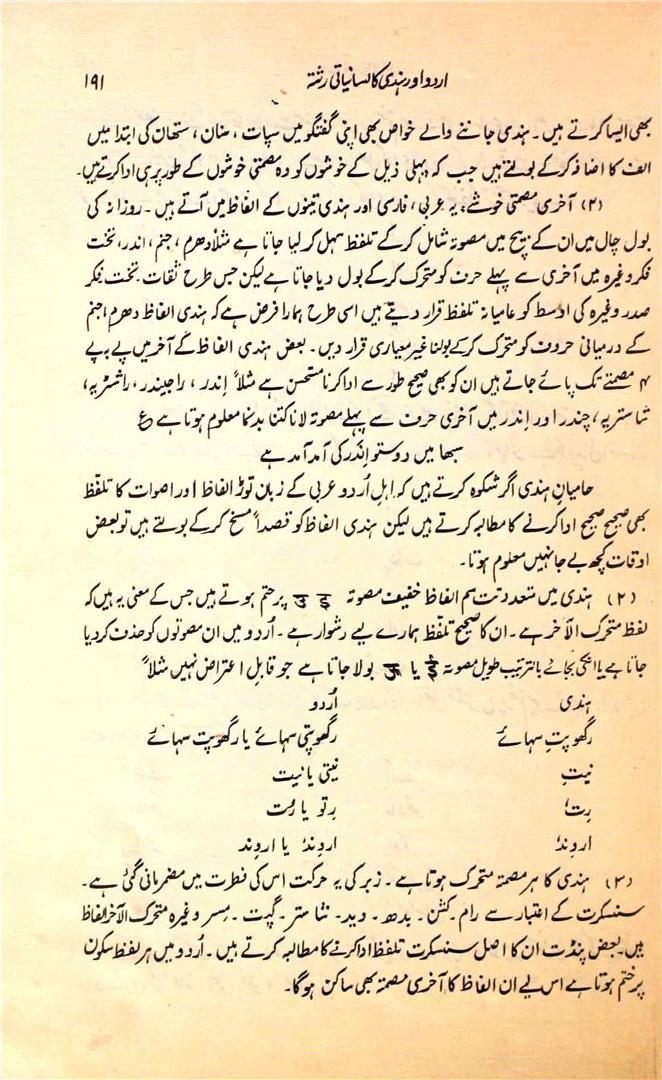 اردو اور ہندی کا لسانیاتی رشتہ ۱۹۱
بھی ایسا کرتے ہیں۔ ہندی جاننے والے خواص بھی اپنی گفتگو میں سپات، سنان، ستھان کی ابتدا میں
الف کا اضافہ کرکے بولتے ہیں جب کہ پہلی ذیل کے خوشوں کو وہ مصمتی خوشوں کے طور پر ہی ادا کرتے ہیں۔
(۲) آخری مصمتی خوشے: یہ عربی، فارسی اور ہندی تینوں کے الفاظ میں آتے ہیں۔ روزانہ کی
بول چال میں ان کے بیچ میں مصوتہ شامل کرکے تلفظ سہل کر لیا جاتا ہے مثلاً دھرم، جنم، اندر، تخت
فکر وغیرہ میں آخری سے پہلے حرف کو متحرک کرکے بول دیا جاتا ہے لیکن جس طرح ثقات تخت، فکر
صدر وغیرہ کی اوسط کو عامیانہ تلفظ قرار دیتے ہیں اسی طرح ہمارا فرض ہے کہ ہندی الفاظ دھرم، جنم
کے درمیانی حروف کو متحرک کرکے بولنا غیر معیاری قرار دیں۔ بعض ہندی الفاظ کے آخر میں پے بہ پے
۴ مصمتے تک پائے جاتے ہیں ان کو بھی صحیح طور سے ادا کرنا مستحسن ہے مثلاً اِندر، راجیندر، راشٹریہ،
شاستریہ، چندر اور اِندر میں آخری حرف سے پہلے مصوتہ لانا کتنا بدنما معلوم ہوتا ہے ع
سبھا میں دوستو اِنَدر کی آمد آمد ہے
حامیانِ ہندی اگر شکوہ کرتے ہیں کہ اہلِ اُردو عربی کے زبان توڑ الفاظ اور اصوات کا تلفظ
بھی صحیح صحیح ادا کرنے کا مطالبہ کرتے ہیں لیکن ہندی الفاظ کو قصداً مسخ کرکے بولتے ہیں تو بعض
اوقات کچھ بے جا نہیں معلوم ہوتا۔
(۲) ہندی میں متعدد تت سم الفاظ خفیف مصوتہ इ उ پر ختم ہوتے ہیں جس کے معنی یہ ہیں کہ
لفظ متحرک الآخر ہے۔ ان کا صحیح تلفظ ہمارے لیے دشوار ہے۔ اُردو میں ان مصوتوں کو حذف کر دیا
جاتا ہے یا انکی بجائے بالترتیب طویل مصوتہ ई یا ऊ بولا جاتا ہے جو قابلِ اعتراض نہیں مثلاً
ہندی اُردو
رگھوپتِ سہائے رگھوپتی سہائے یا رگھوپت سہائے
نیتِ نیتی یا نیت
رِتُ رِتو یا رُت
اروِندُ اروِندُ یا اروِند
(۳) ہندی کا ہر مصمتہ متحرک ہوتا ہے۔ زبر کی یہ حرکت اس کی فطرت میں مضمر مانی گئی ہے۔
سنسکرت کے اعتبار سے رام۔ کشن۔ بدھ۔ وید۔ شاستر۔ گپت۔ مِسر وغیرہ متحرک الآخر الفاظ
ہیں۔ بعض پنڈت ان کا اصل سنسکرت تلفظ ادا کرنے کا مطالبہ کرتے ہیں۔ اُردو میں ہر لفظ سکون
پر ختم ہوتا ہے اس لیے ان الفاظ کا آخری مصمتہ بھی ساکن ہوگا۔